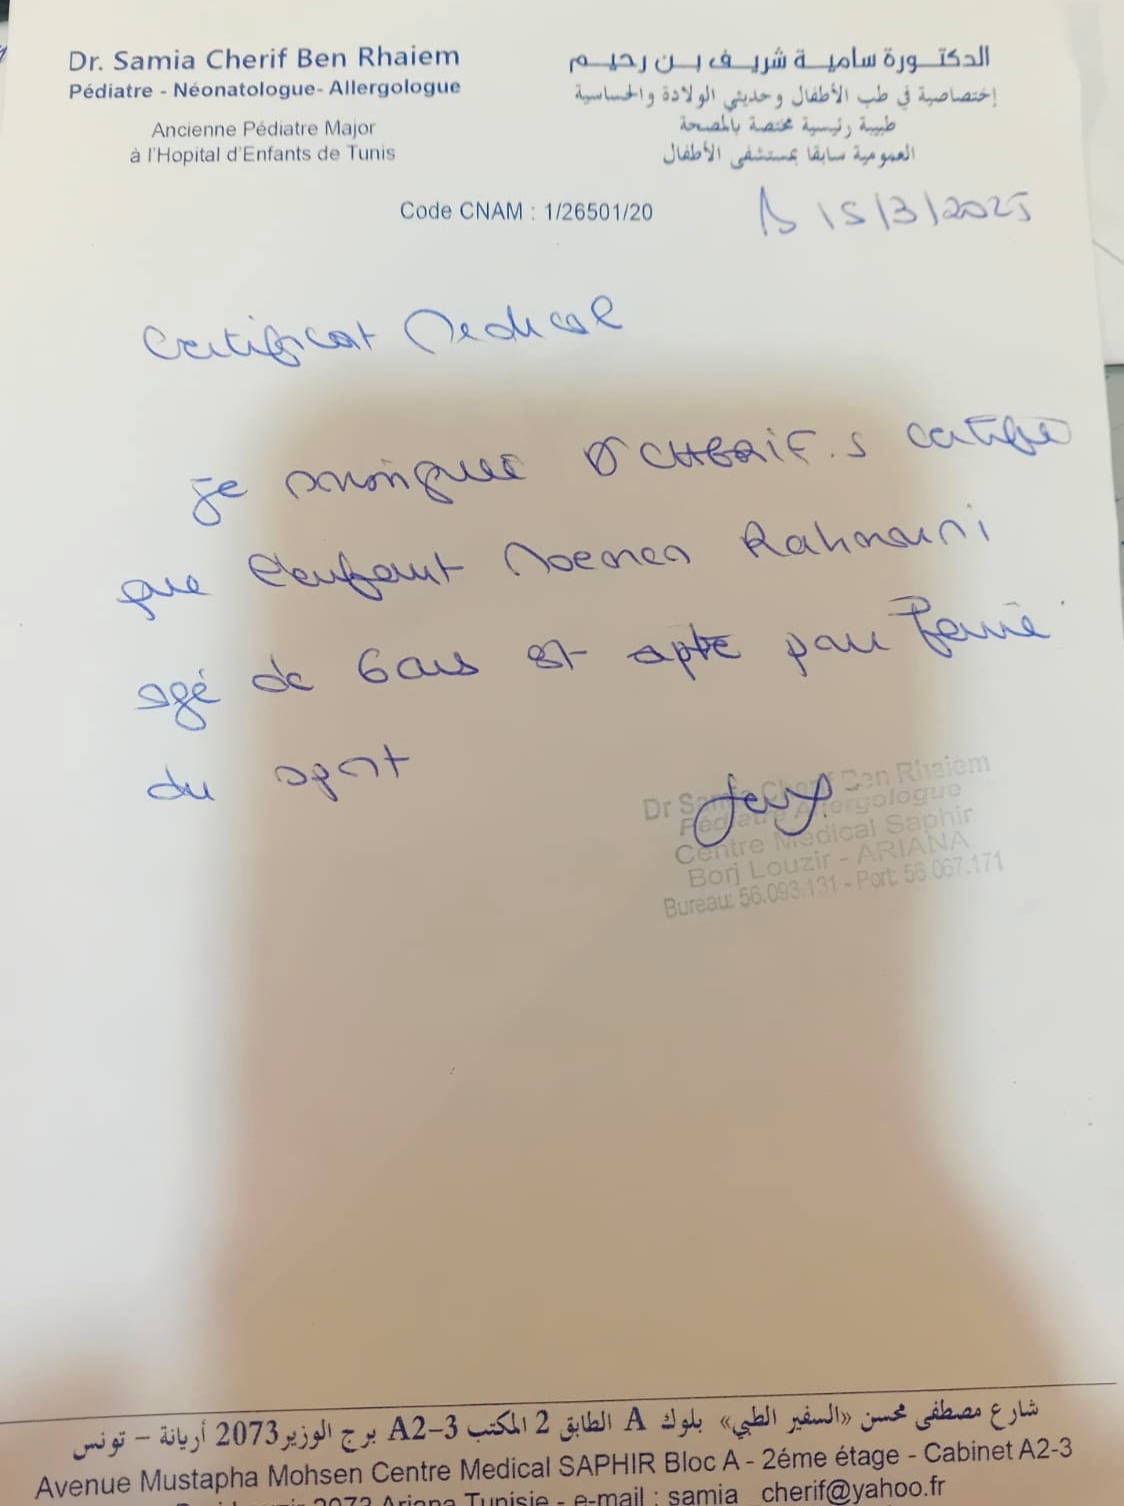 Dr. Samia Cherif Ben Rhaiem
Pédiatre - Néonatologue- Allergologue
Ancienne Pédiatre Major
à l'Hopital d'Enfants de Tunis
الدكتورة سامية شريف بن رحيم
إختصاصية في طب الأطفال وحديثي الولادة والحساسية
طبيبة رئيسية مختصة بالصحة
العمومية سابقا بمستشفى الأطفال
Code CNAM : 1/26501/20
15/3/2025
Certificat Medical
je soussignée Dr CHERIF.S certifie
que l'enfant Rahmouni
agé de 6 ans est apte pour faire
du sport
Dr Samia Cherif Ben Rhaiem
Pédiatre Allergologue
Centre Médical Saphir
Borj Louzir - ARIANA
Bureau: 56.093.131 - Port: 56.067.171
شارع مصطفى محسن «السفير الطبي» بلوك A الطابق 2 المكتب A2-3 برج الوزير 2073 أريانة - تونس
Avenue Mustapha Mohsen Centre Medical SAPHIR Bloc A - 2éme étage - Cabinet A2-3
2073 Ariana Tunisie - e-mail : samia_cherif@yahoo.fr